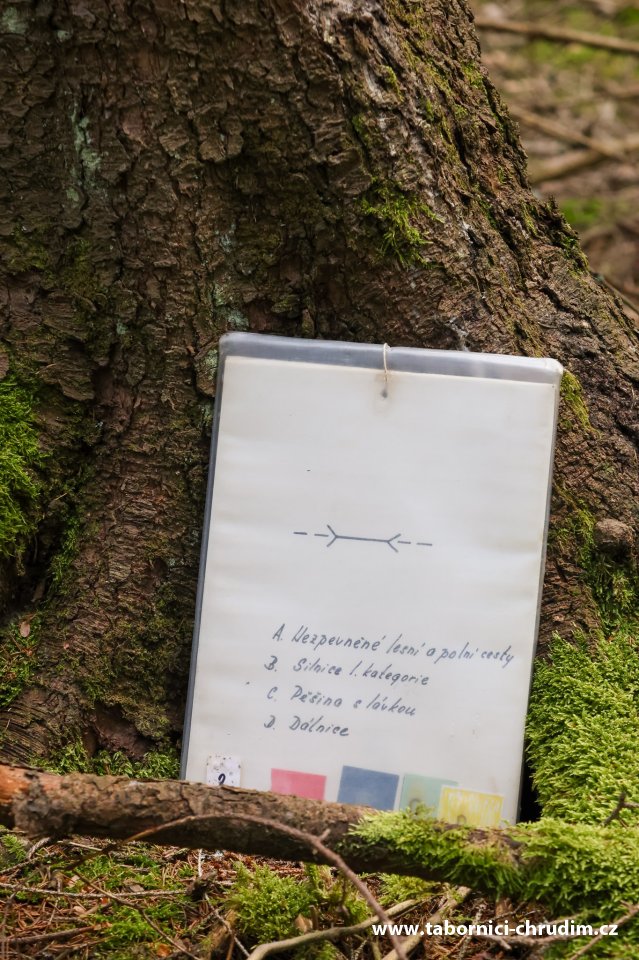 A. Nezpevněné lesní a polní cesty
B. Silnice I. kategorie
C. Pěšina s lávkou
D. Dálnice
2
www.tabornici-chrudim.cz